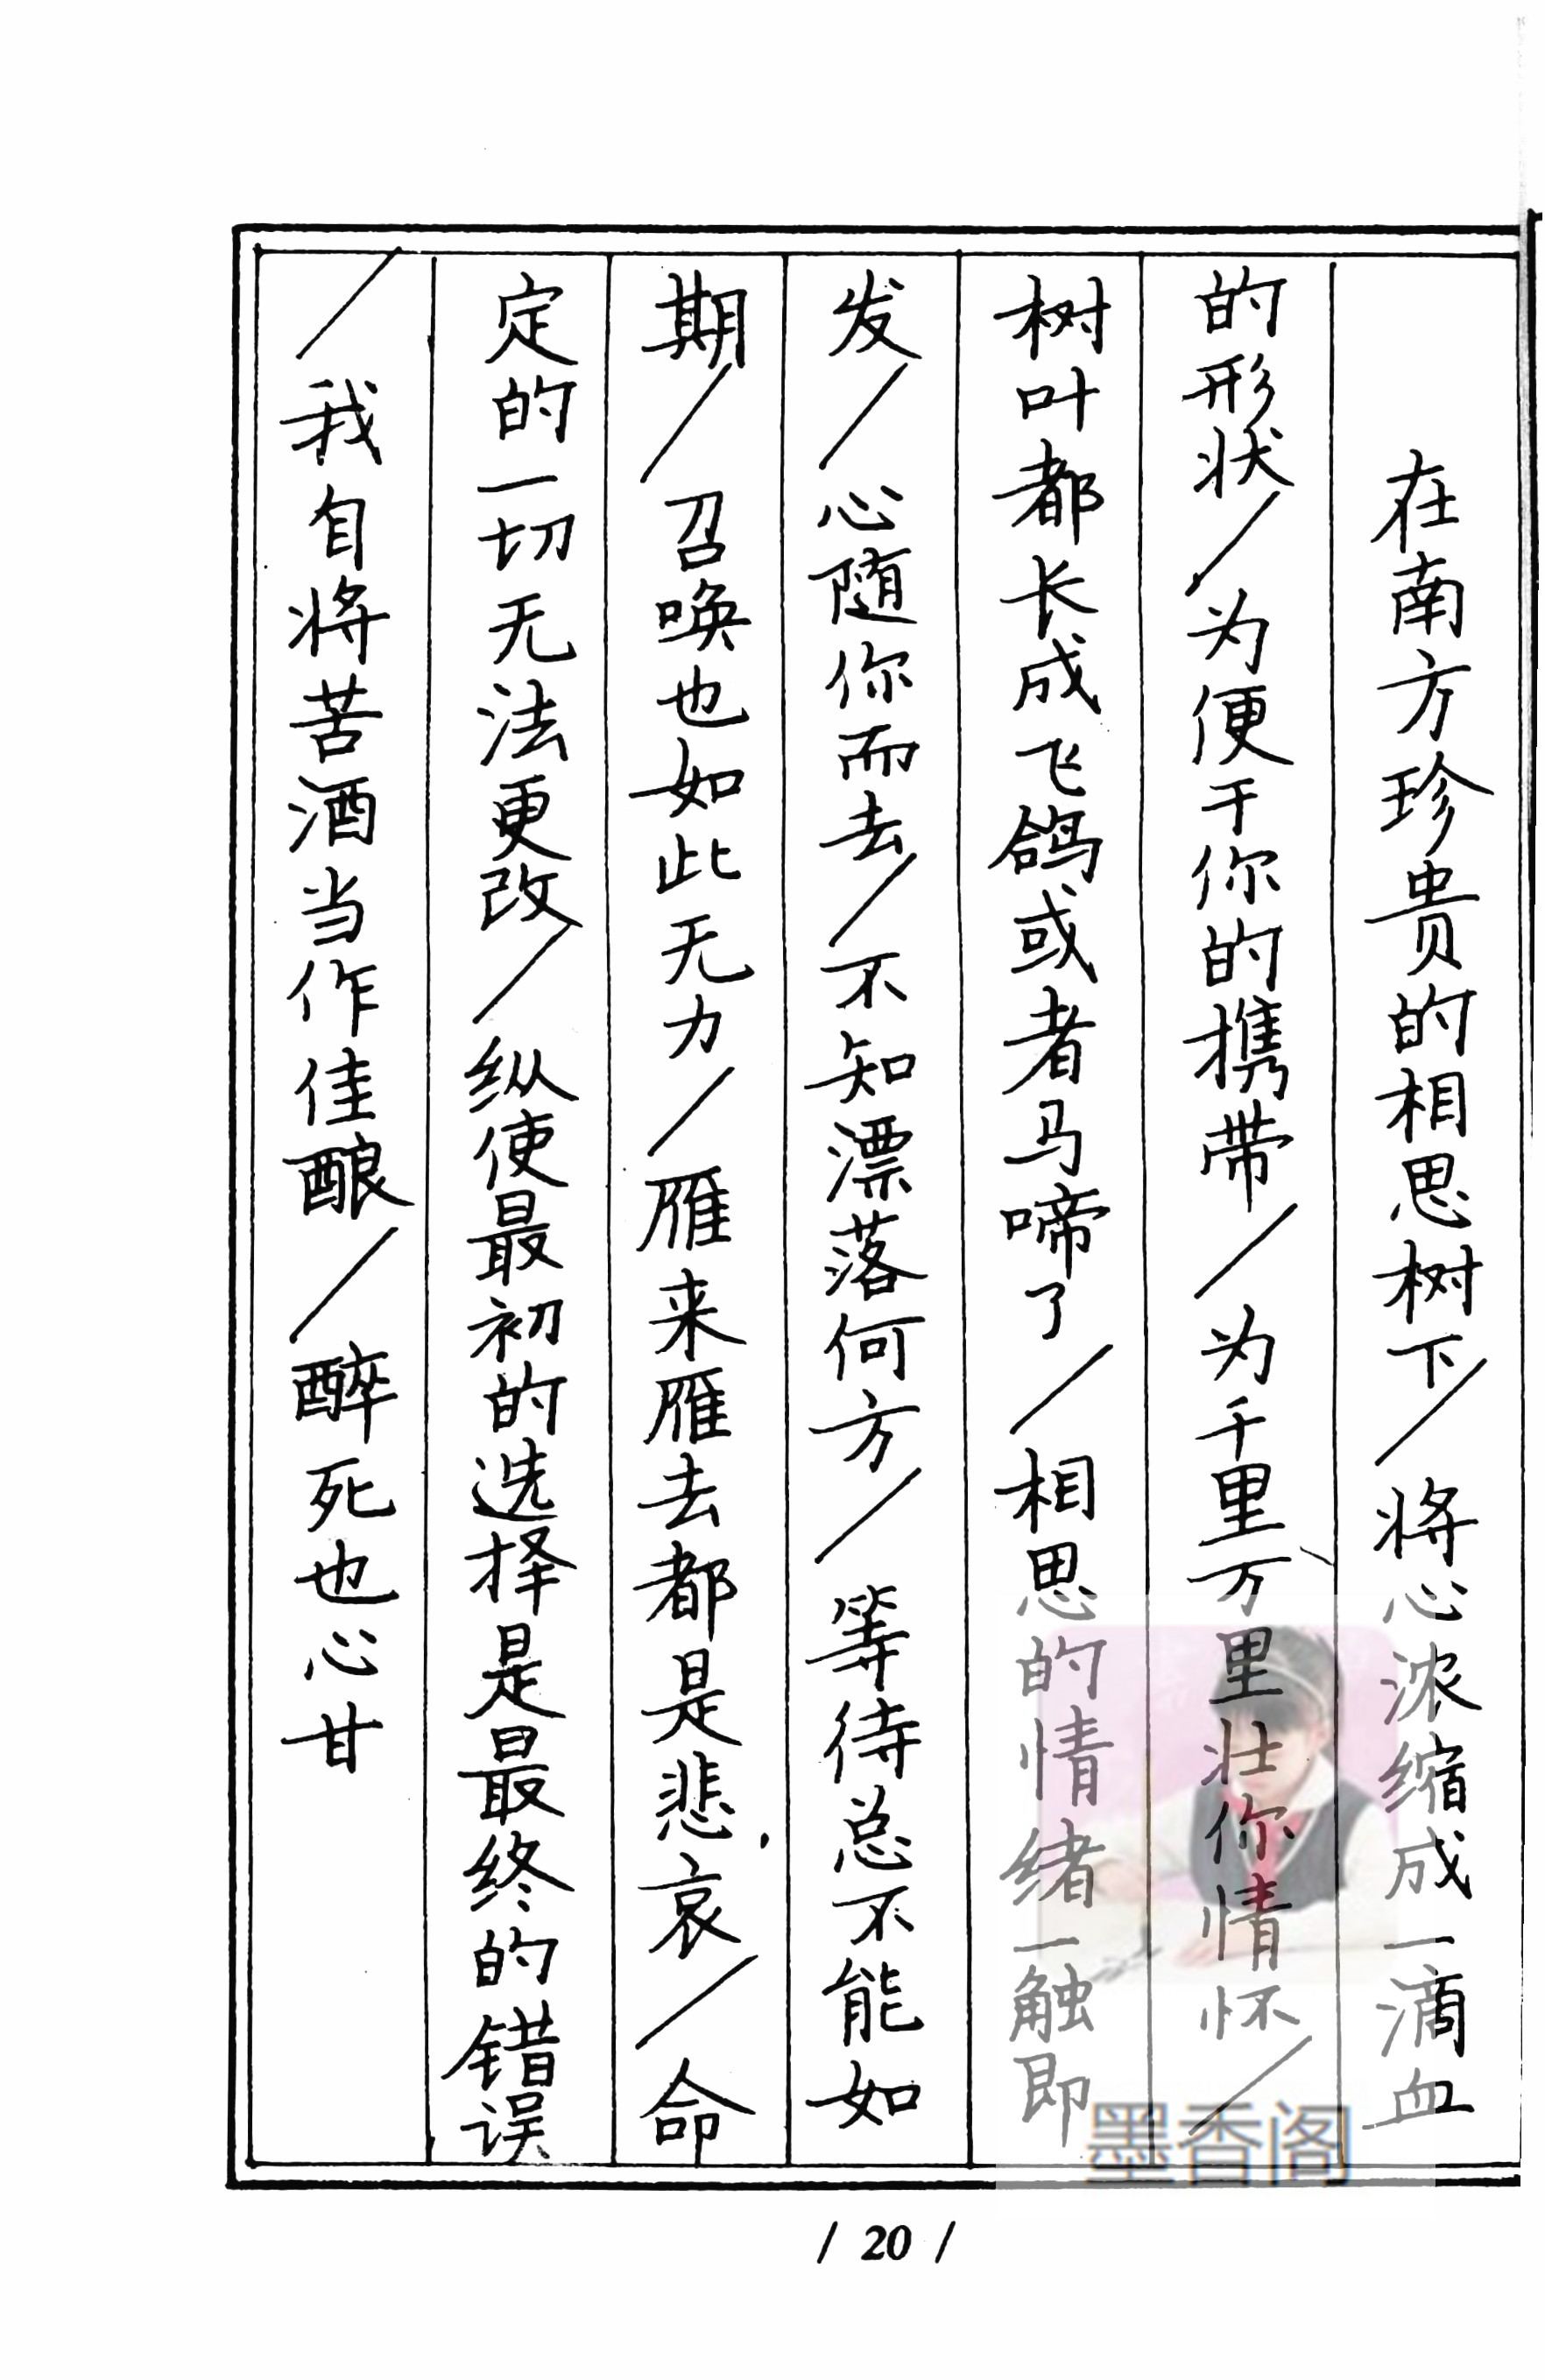 在南方珍贵的相思树下／将心浓缩成一滴血
的形状／为便于你的携带／为千里万里壮你情怀／
树叶都长成飞鸽或者马啼了／相思的情绪一触即
发／心随你而去／不知漂落何方／等待总不能如
期／召唤也如此无力／雁来雁去都是悲哀／命
定的一切无法更改／纵使最初的选择是最终的错误
／我自将苦酒当作佳酿／醉死也心甘
墨香阁
/ 20 /